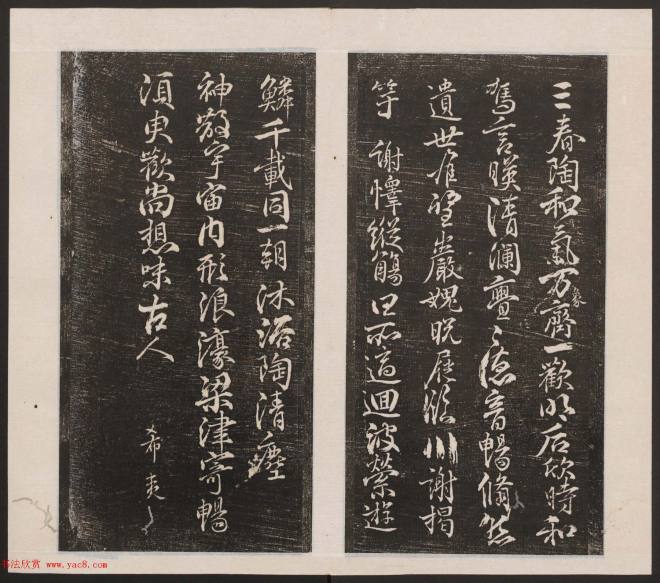 三春陶和氣万齊一歡明后欣時和
駕言暎清澜亹亹德音暢脩然
遺世難望巖愧脱屐臨川謝揭
竿 謝懌縱觴任所適迴波縈遊
鱗千載同一朝沐浴陶清塵
神散宇宙内形浪濠梁津寄暢
須臾歡尚想味古人
书法欣赏 www.yac8.com